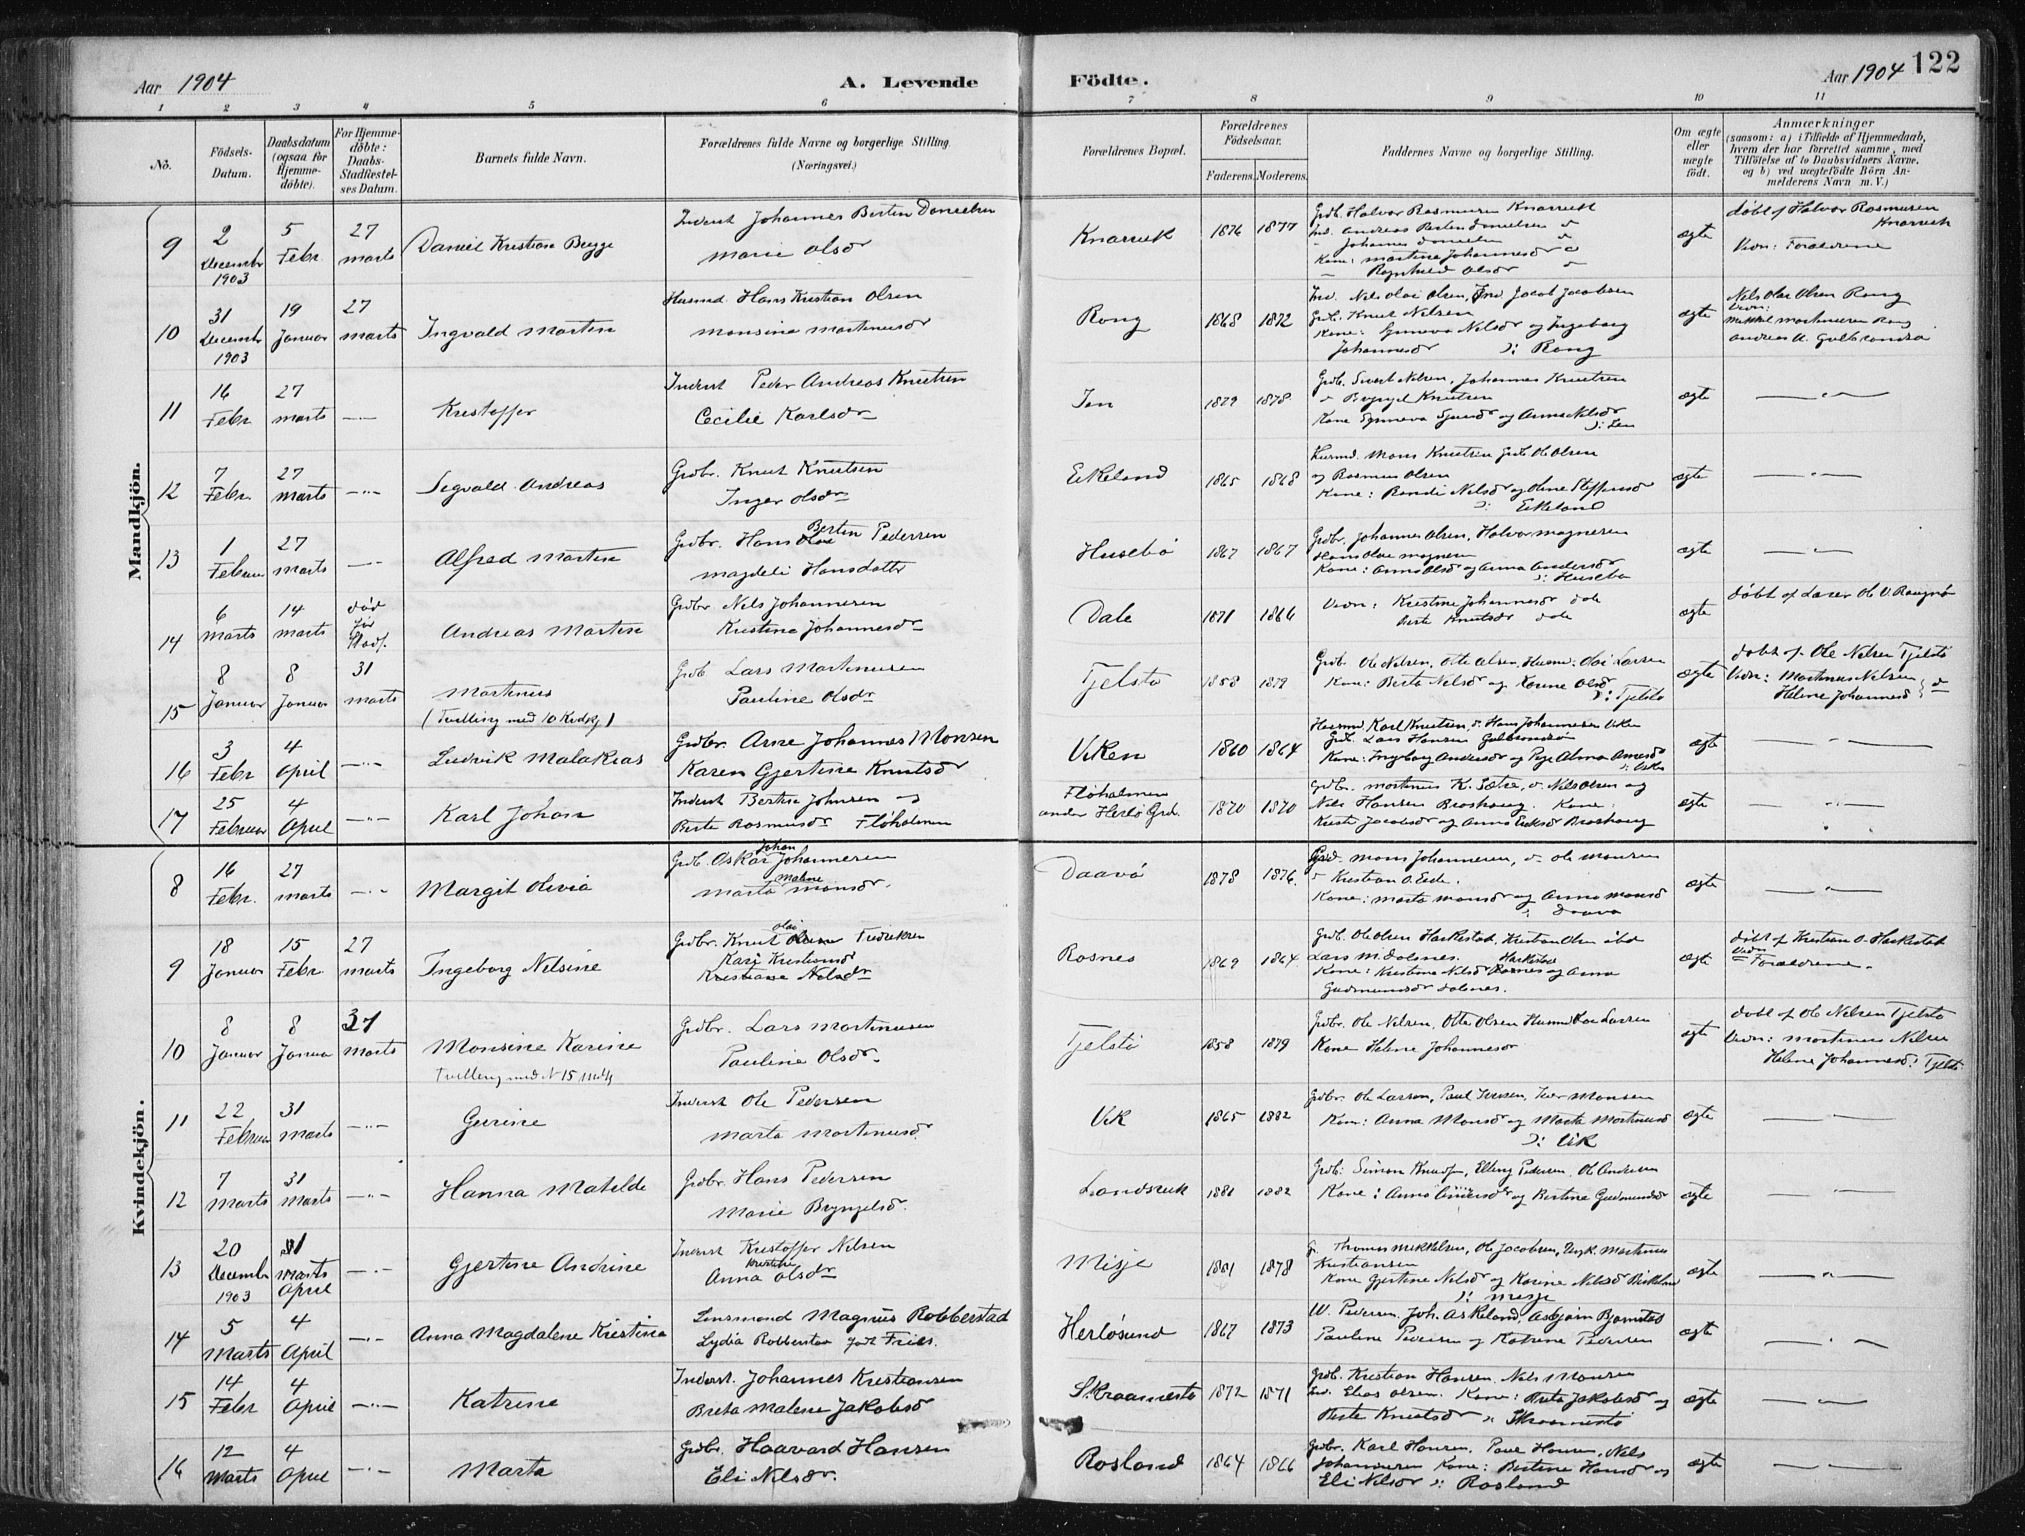 Aar 1904
A. Levende
Födte.
Aar 1904 122
1 2 3 4 5 6 7 8 9 10 11
Nô.
Födsels-Datum.
Daabsdatum (ogsaa för Hjemme-döbte).
For Hjemme-döbte: Daabs-Stadfæstel-ses Datum.
Barnets fulde Navn.
Forældrenes fulde Navne og borgerlige Stilling
(Næringsvei.)
Forældrenes Bopæl.
Forældrenes Födselsaar.
Faderens. Moderens.
Faddernes Navne og borgerlige Stilling.
Om ægte eller uægte födt.
Anmærkninger
(saasom: a) i Tilfælde af Hjemmedaab,
hvem der har forrettet samme, med
Tilföielse af to Daabsvidners Navne.
og b) ved uægtefödte Börn An-
melderens Navn m. V.)
Mandkjön.
9 2 December 1903 5 Febr. 27 marts Daniel Kristian Brygge
Inderst Johannes Bertin Danielsen
Marie Olsdr
Knarvik 1876 1877
Grdb. Halvor Rasmussen Knarvik
Johannes Danielsen
Kone: Martina Johannesdr
Ragnhild Olsdr
ægte
döbt af Halvor Rasmussen
Knarvik
Vidn: Forældrene
10 31 December 1903 19 Januar 27 marts Ingvald Martin
Husmd Hans Kristian Olsen
Monsina Martinusdr
Rong 1868 1872
Ind. Nils Olai Olsen, Ind Jacob Jacobsen
Grdb. Knut Nilsen
Kone: Gunneva Nilsdr og Ingeborg
Johannesdr ɔ: Rong
ægte
Nils Olai Olsen Rong
Vidn:
Mikkel Martinusen Rong
11 16 Febr 27 marts —"— Kristoffer
Inderst Peder Andreas Knutsen
Cecilie Karlsdr
1879 1878
Grdb. Sivert Nilsen, Johannes Knutsen
" Brynjel Knutsen
ægte —"—
12 7 Febr. 27 marts —"— Segvald Andreas
Grdbr. Knut Knutsen
Inger Olsdr
Eikeland 1865 1868
Husmd. Mons Knutsen Grdb Ole Olsen
og Rasmus Olsen
Kone: Randi Nilsdr og Oline Steffensdr
ɔ: Eikeland
ægte —"—
13 1 Februar 27 marts —"— Alfred Martin
Grdbr. Hans Bertin Pedersen
Magdeli Hansdatter
Husebö 1867 1867
Grdbr. Johannes Olsen, Halvor Magnesen
Hans Olai Magnesen
Kone: Anna Olsdr og Anna Andersdr
ɔ: Husebö
ægte —"—
14 6 Marts 14 marts död för Stadf. Andreas Martin
Grdbr. Nils Johannesen
Kristina Johannesdr
Dale 1871 1866
Vidn: Kristine Johannesdr Dale
Berte Knutsdr Dale
ægte
döbt af Lærer Ole V.
15 8 Januar 8 Januar 31 marts Martinus
(Tvilling med 10 Kvdkj)
Grdb Lars Martinusen
Pauline Olsdr
Tjelstö 1858 1879
Grdb Ole Nilsen, Otte Olsen, Husmd: Olai Larsen
Kone: Berta Nilsdr og Karine Olsdr
ɔ: Tjelstö
ægte
döbt af Ole Nilsen Tjelstö
Vidn: Martinus Nilsen
Helene Johannesd
16 3 Febr 4 April —"— Ludvik Malakias
Grdbr. Arne Johannes Monsen
Karen Gjertine Knutsdr
Viken 1860 1864
Husmd Karl Knutsen, " Hans Johannesen Viken
Grdb. Lars Hansen Gulbrandsö
Kone: Ingeborg Andersdr og Pige Alma Arnesdr
ɔ: Viken
ægte —"—
17 25 Februar 4 April —"— Karl Johan
Inderst Bertin Johnsen og
Berte Rasmusdr Flöholmen
Flöholmen
under Herlö Grd. 1870 1870
Grdbr. Martinus K. Sætre, " Nils Olsen og
Nils Hansen Broshaug. Kone:
Kriste Jacobsdr og Anna Eriksdr Broshaug
ægte —"—
Kvindekjön.
8 16 Febr. 27 marts —"— Margit Olivia
Grdb. Oskar Johan Johannesen
Marta Malene Monsdr.
Daavö 1878 1876.
Grd. Mons Johannesen, " Ole Monsen
" Kristian O. Eide.
Kone: Marta Monsdr og Anna Monsd
ægte —"—
9 18 Januar 15 Febr. 27 marts Ingeborg Nilsine
Grdbr. Knut Olai Fredriksen
Kari Kristiansd
Kristiane Nilsdr
Rosnes 1869 1864
Grdb. Ole Olsen Haskestad, Kristian Olsen ibd
Lars M. Dolsnes. Haskestad
Kone: Kristine Nilsdr Rosnes og Anna
Gudmundsdr Dolsnes.
ægte
döbt af Kristian O. Haskestad
Vidn
Forældrene.
10 8 Januar 8 Januar 31 Marts Monsine Karine
Tvilling med N 15 Mdkj
Grdbr. Lars Martinusen
Pauline Olsdr.
Tjelstö 1858 1879
Grdbr. Ole Nilsen, Otte Olsen Husmd Olai Larsen
Kone Helene Johannesdr
ægte
döbt af Ole Nilsen Tjelstö
Vidn: Martinus Nilsen
Helene Johannesd: Tjelstö
11 22 Februar 31 marts —"— Gurine
Inderst Ole Pedersen
Marta Martinusd.
Vik 1865 1882
Grdbr. Ole Larsen, Paul Iversen, Iver Monsen
Kone: Anna Monsdr og Marta Martinusd
ɔ: Vik
ægte —"—
12 7 Marts 31 Marts —"— Hanna Matilde
Grdbr. Hans Pedersen
Marie Brynjelsd.
Landsvik 1881 1882
Grdb: Simon Knudsen, Elling Pedersen, Ole Andersen
Kone: Anna Andersdr og Bertine Gudmundsdr
ægte —"—
13 20 December 1903 31 Marts April —"— Gjertine Andrine
Inderst Kristoffer Nilsen
Anna Kristine Olsdr
Misje 1881 1878
Thomas Mikkelsen, Ole Jacobsen, Ungk. Martinus
Kristiansen
Kone Gjertine Nilsdr og Karine Nilsdr Birkeland
ɔ: Misje
ægte —"—
14 5 Marts 4 April —"— Anna Magdalene Kristina
Lensmand Magnus Robberstad
Lydia Robberstad född Fries.
Herlösund 1867 1873
W. Pedersen, Joh. Askeland, Asbjörn Bjørnstad
Pauline Pedersen og Katrine Pedersen
ægte —"—
15 14 Febr 4 April —"— Katrine
Inderst. Johannes Kristiansen
Breta Malene Jakobsd
Skraamestö 1872 1871
Grdb. Kristian Hansen, Nils Monsen
Ind. Elias Olsen. Kone: Brita Jakobsd og
Berte Knutsdr ɔ: Skraamestö
ægte —"—
16 12 Marts 4 April —"— Marta
Grdbr. Haavard Hansen
Eli Nilsdr.
Rosland 1864 1866
Grdbr. Karl Hansen, Paul Hansen, Nils
Johannesen Kone: Bertine Hansdr og
Eli Nilsdr ɔ: Rosland
ægte —"—